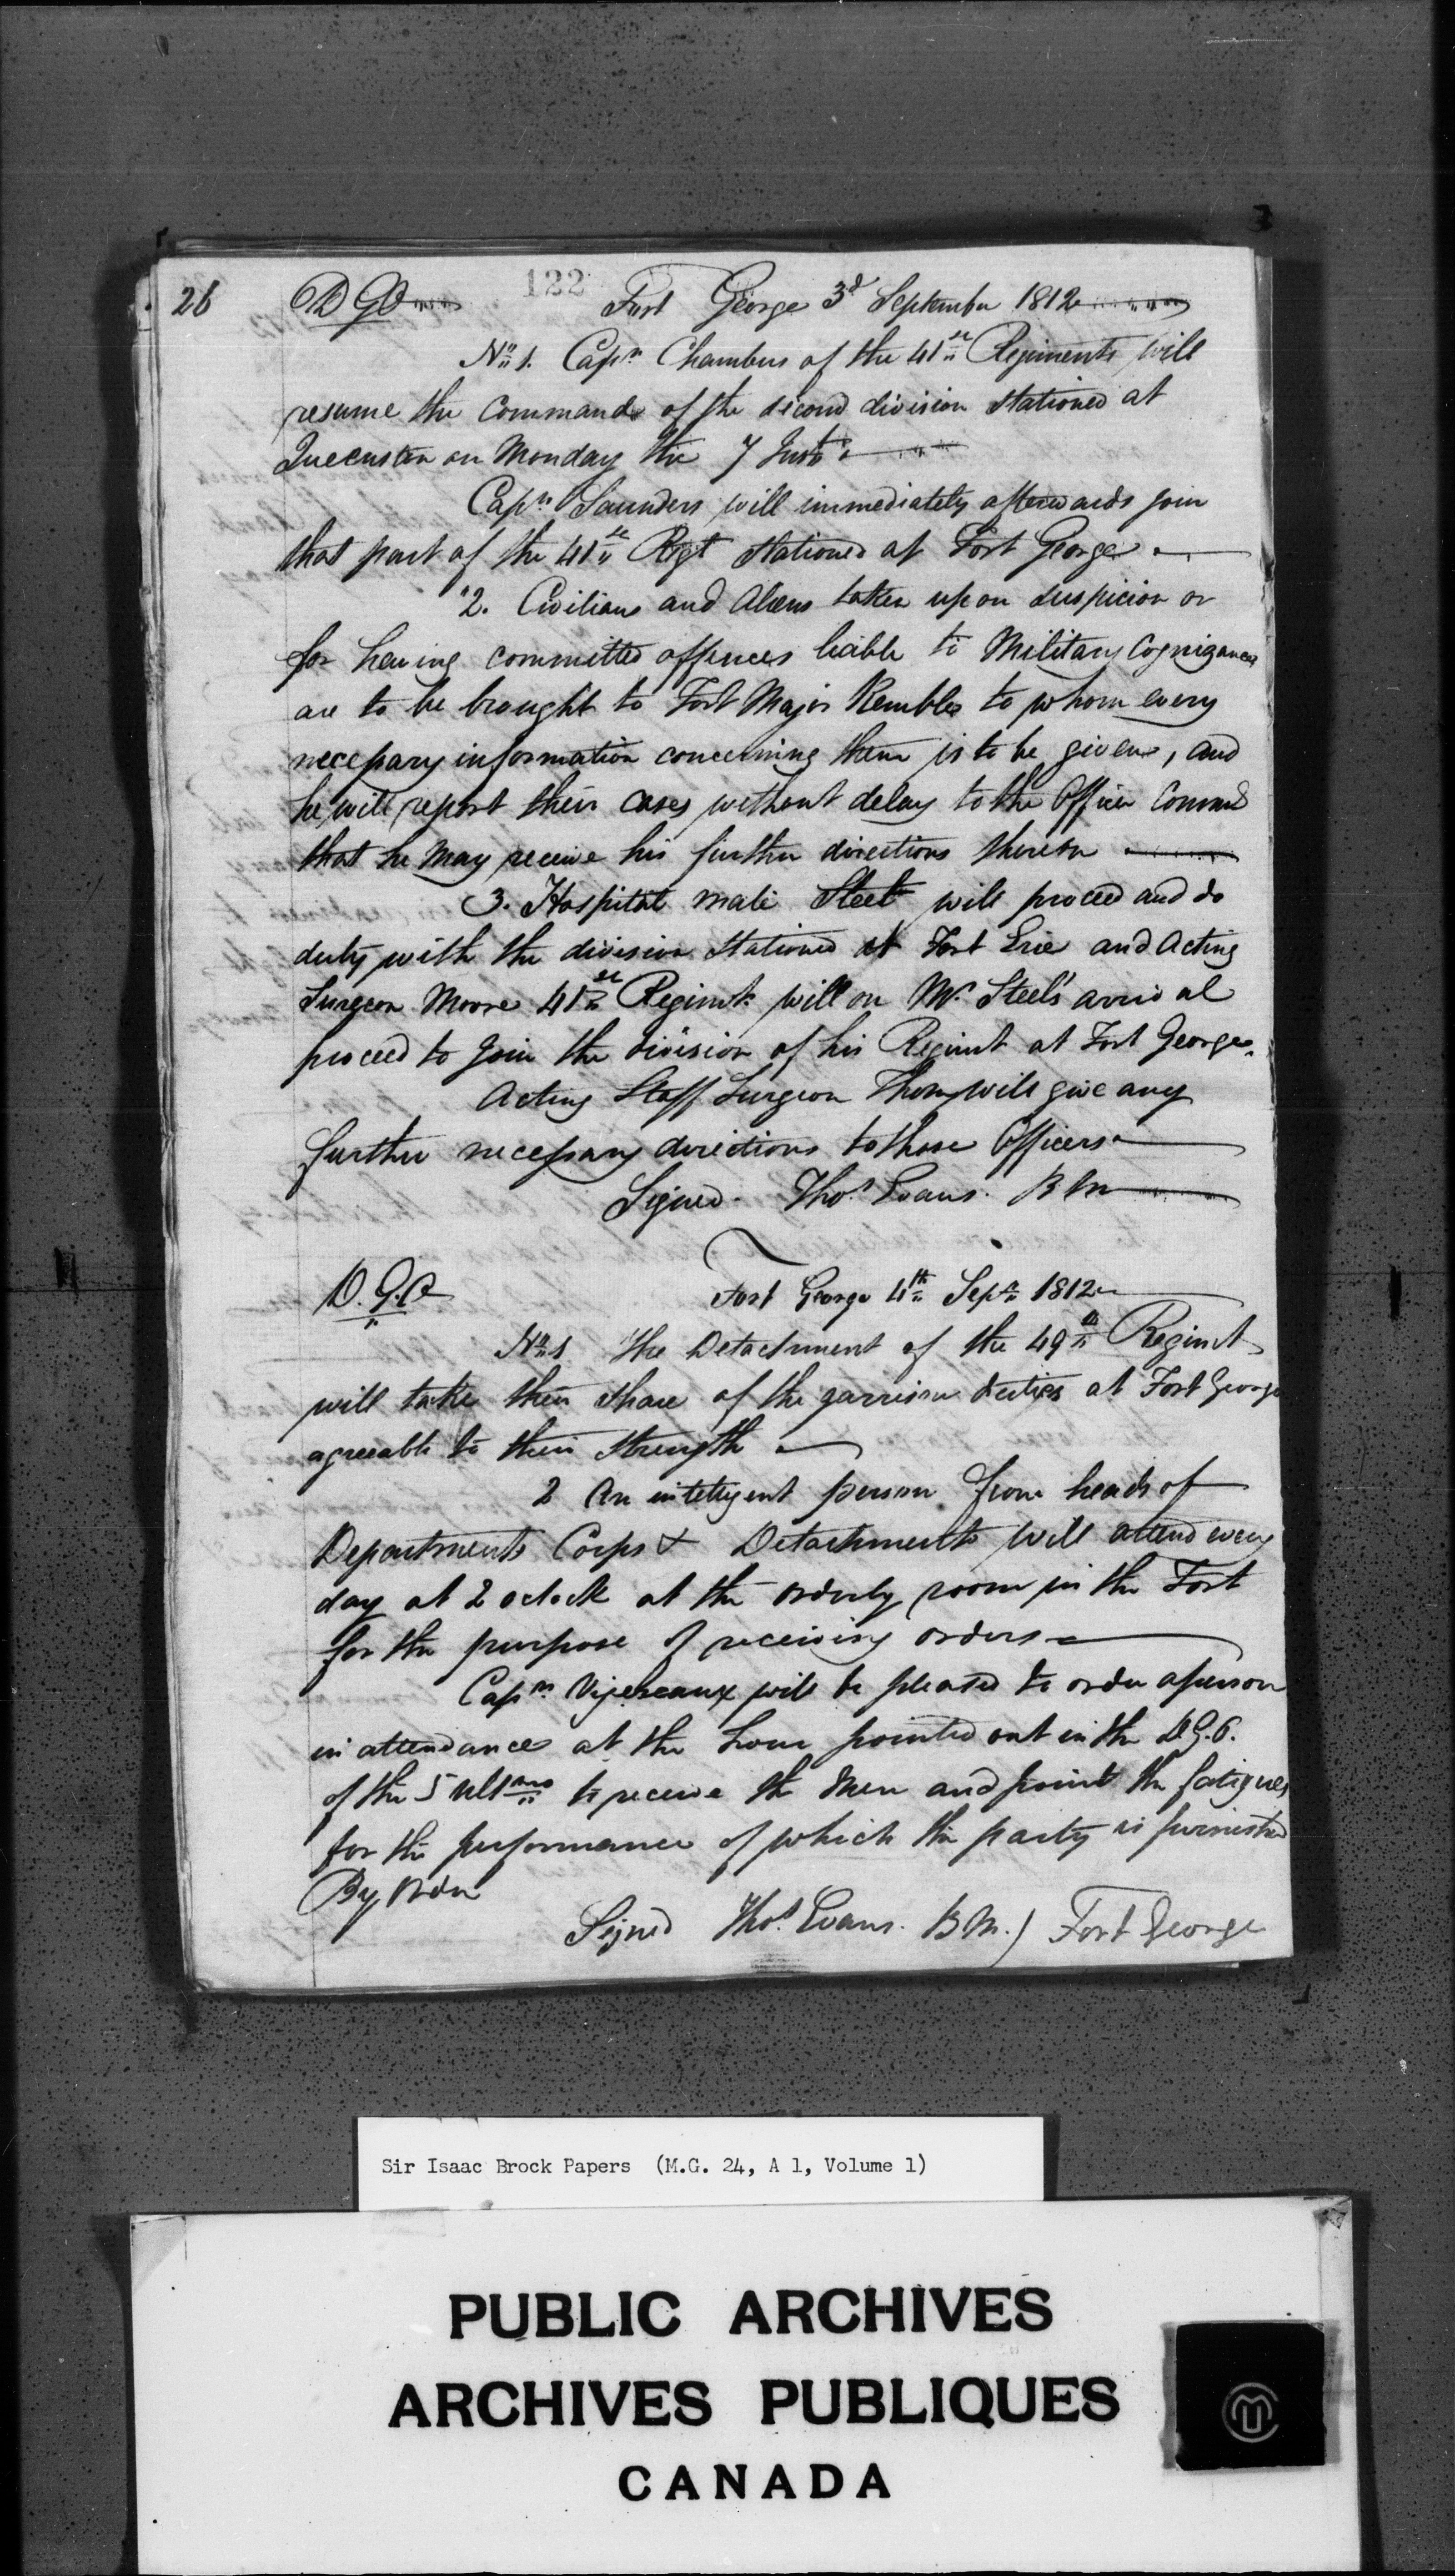 26
122
D G O
Fort George 3d September 1812
No 1. Capn Chambers of the 41st Regiments will
resume the Command of the second division stationed at
Queenston on Monday the 7 Inst
Capn Saunders will immediately afterwards join
that part of the 41st Regt stationed at Fort George
"2. Civilians and Aliens taken up on suspicion or
for having committed offences liable to Military Cognizance
are to be brought to Fort Major Kemble to whom every
necessary information concerning them is to be given, and
he will report their cases without delay to the Officer Command
that he may receive his further directions thereon
3. Hospital mate Steel will proceed and do
duty with the division stationed at Fort Erie and Acting
Surgeon Moore 41st Regimt will on Mr Steel's arrival
proceed to join the division of his Regimt at Fort George.
Acting Staff Surgeon Thom will give any
further necessary directions to those Officers
Signed. Thos Evans. B M
D.G.O
Fort George 4th Sepr 1812
No 1 The Detachment of the 49th Regimt
will take their share of the garrison duties at Fort George
agreeable to their strength
2 An intelligent person from heads of
Departments Corps & Detachments will attend every
day at 2 oclock at the orderly room in the Fort
for the purpose of receiving orders
Capn Vigereaux will be pleased to order a person
in attendance at the hour pointed out in the D.G.O.
of the 5 Ultmo to receive the men and point the fatigues
for the performance of which the party is furnished
By Order
Signed Thos Evans. B M.) Fort George
Sir Isaac Brock Papers (M.G. 24, A 1, Volume 1)
PUBLIC ARCHIVES
ARCHIVES PUBLIQUES
CANADA